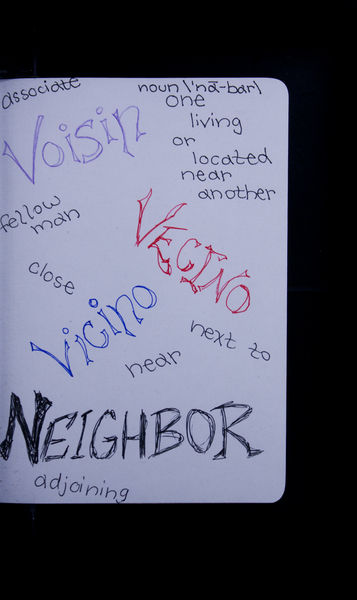 associate
noun \'nā-bər\
one
living
or
located
near
another
Voisin
fellow
man
VECINO
close
Vicino
next to
near
NEIGHBOR
adjoining